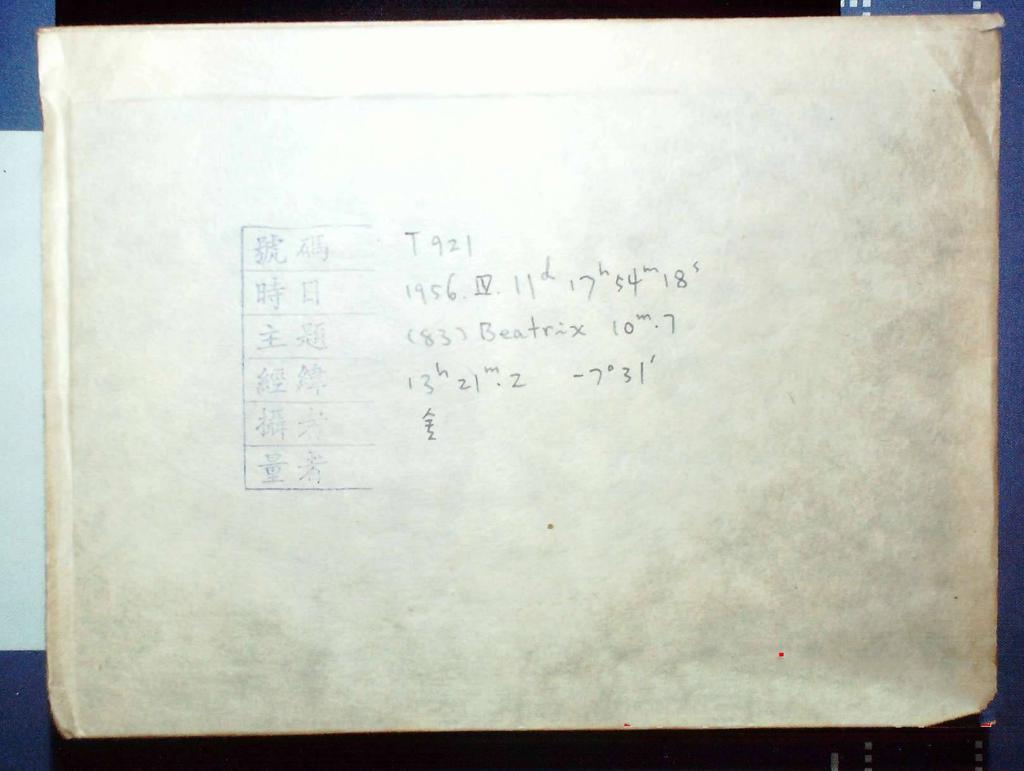 號碼 T921
時日 1956.Ⅳ.11ᵈ 17ʰ 54ᵐ 18ˢ
主題 (83) Beatrix 10ᵐ.7
經緯 13ʰ 21ᵐ.2 -7°31′
攝者 金
量者